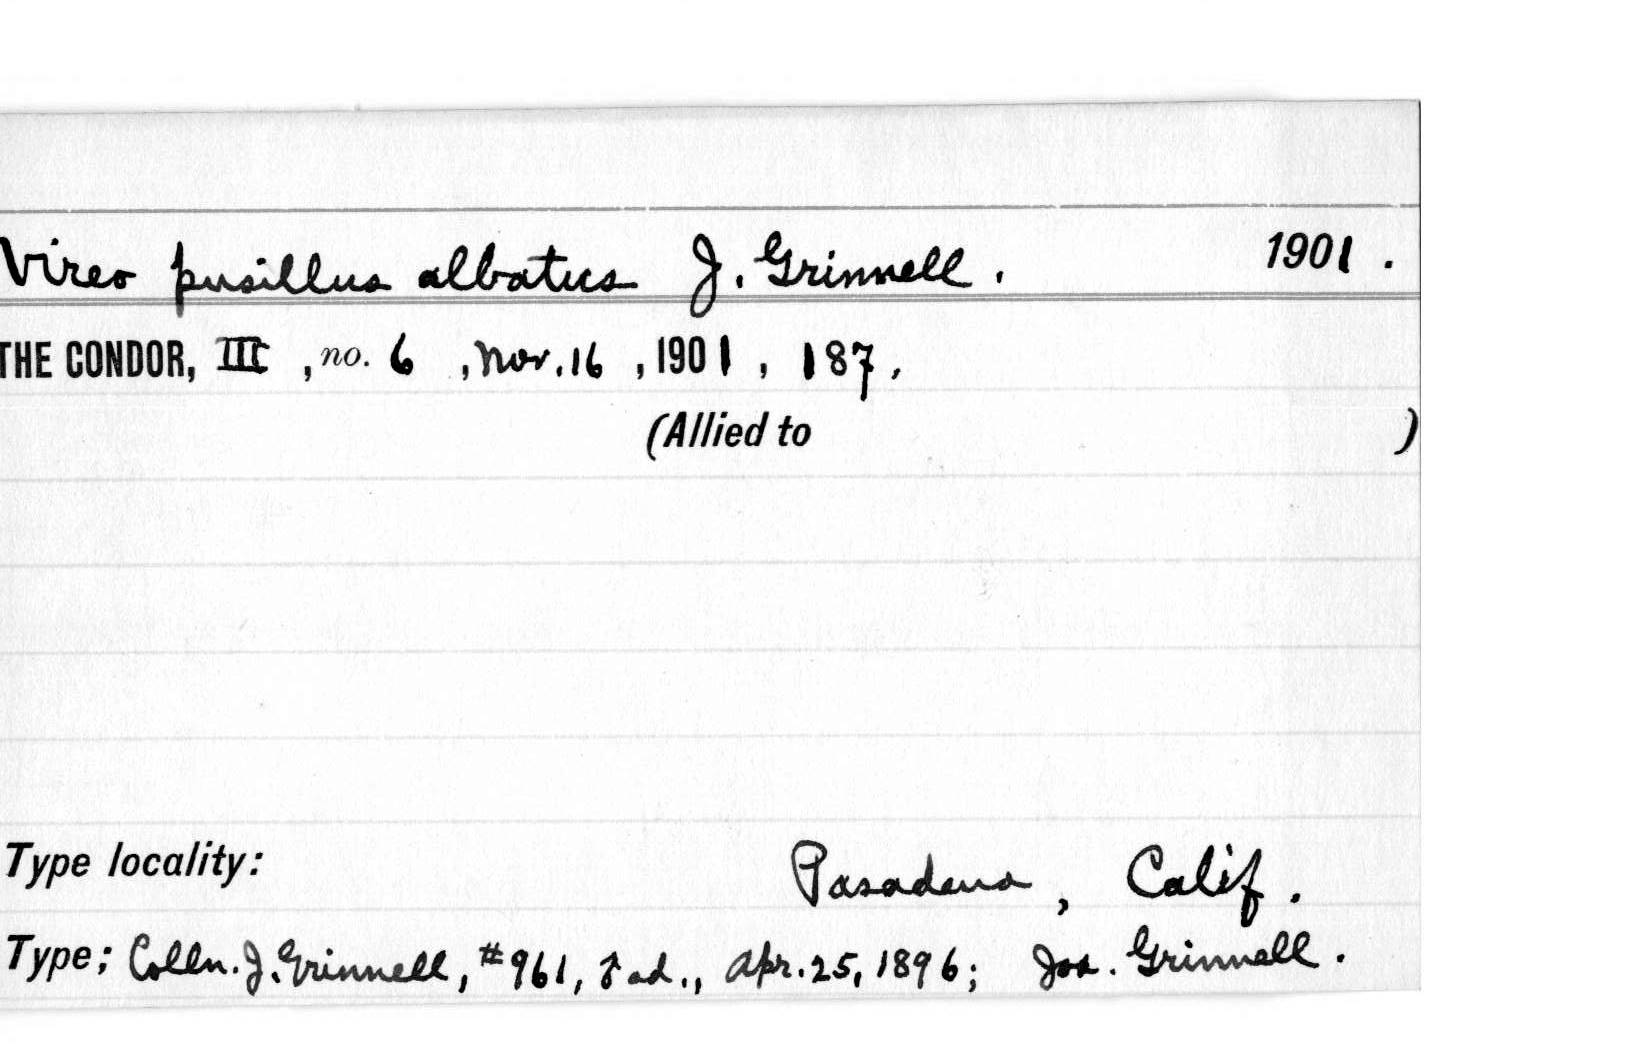 Vireo pusillus albatus J. Grinnell. 1901.
THE CONDOR, III, no. 6, Nov. 16, 1901, 187.
(Allied to )
Type locality: Pasadena, Calif.
Type; Colln. J. Grinnell, #961, ♂ ad., Apr. 25, 1896; Jos. Grinnell.